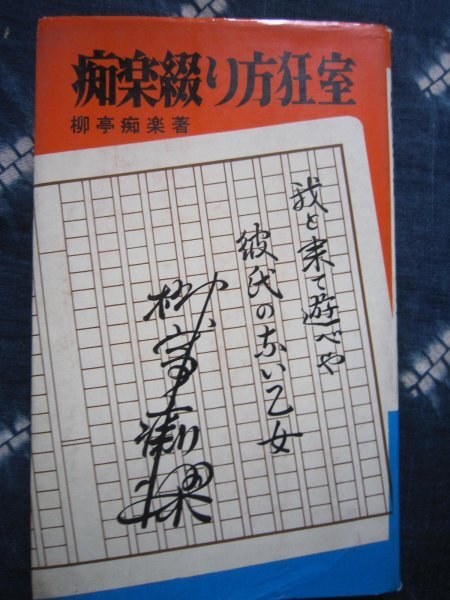 痴楽綴り方狂室
柳亭痴楽著
我と来て遊べや
彼氏のない乙女
柳亭痴楽